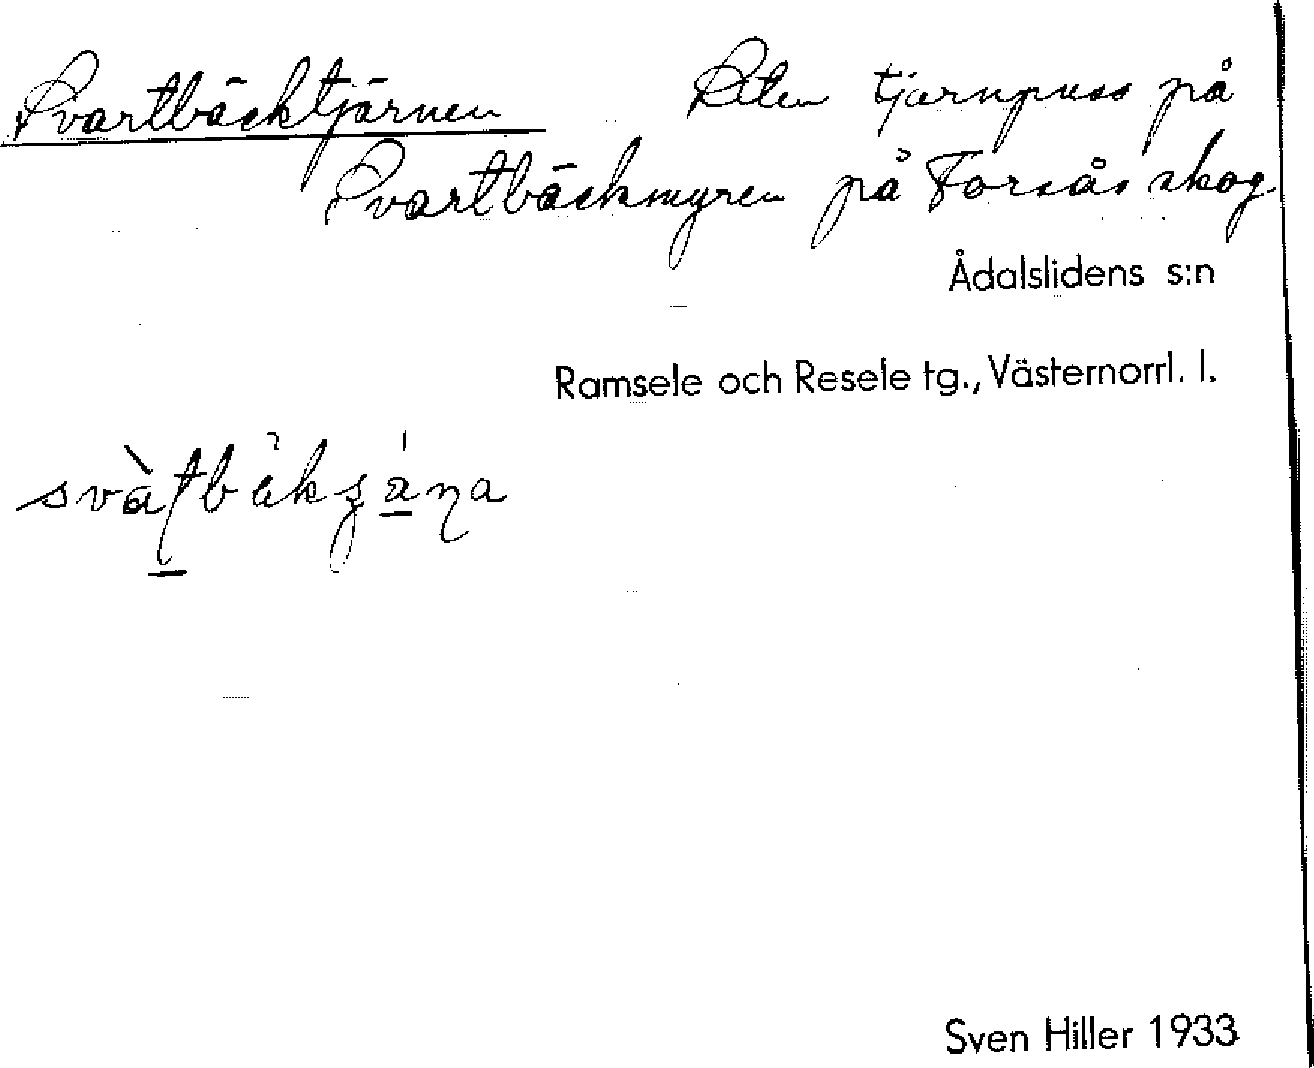 Svartbäcktjärnen Liten tjärnpuss på
Svartbäckmyren på Forsås skog.
Ådalslidens s:n
Ramsele och Resele tg., Västernorrl. l.
Sven Hiller 1933